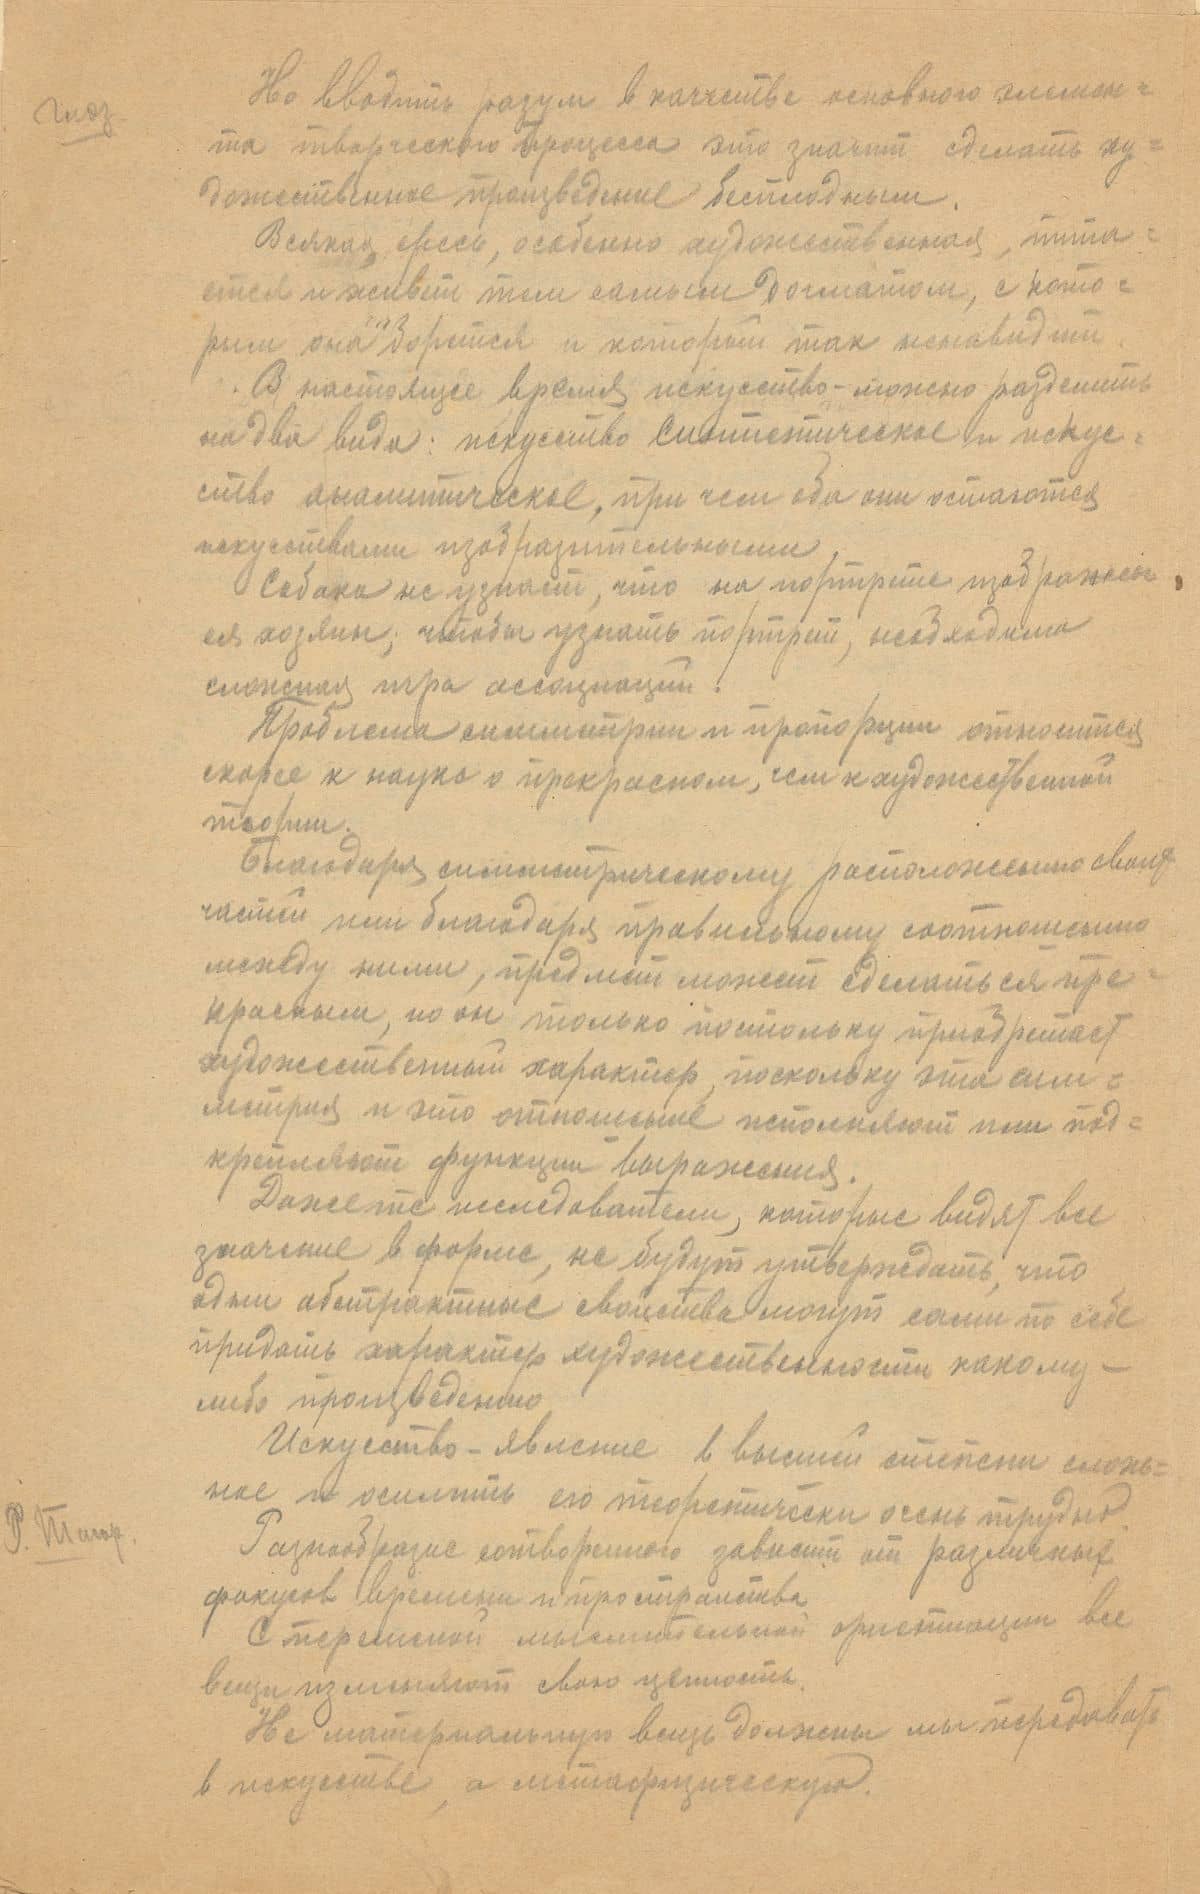 Но вводить разум в качестве основного элемен-
Глэз.
та творческого процесса это значит сделать ху-
дожественное произведение бесплодным.
Всякая ересь, особенно художественная, пита-
ется и живет тем самым догматом, с кото-
рым она борется и который так ненавидит.
В настоящее время искусство – можно разделить
на два вида: искусство синтетическое и искус-
ство аналитическое, при чем оба они остаются
искусствами изобразительными.
Собака не узнает, что на портрете изображен
ея хозяин; чтобы узнать портрет, необходима
сложная игра ассоциаций.
Проблема симметрии и пропорции относится
скорее к науке о прекрасном, чем к художественной
теории.
Благодаря симметрическому расположению своих
частей или благодаря правильному соотношению
между ними, предмет может сделаться пре-
красным, но он только постольку приобретает
художественный характер, поскольку эта сим-
метрия и это отношение исполняют или под-
крепляют функции выражения.
Даже те исследователи, которые видят все
значение в форме, не будут утверждать, что
одни абстрактные свойства могут сами по себе
придать характер художественности какому-
либо произведению
Искусство – явление в высшей степени слож-
ное и осилить его теоретически очень трудно.
Р. Тагор.
Разнообразие сотворенного зависит от различных
фокусов времени и пространства
С переменой мыслительной ориентации все
вещи изменяют свою ценность.
Не материальную вещь должны мы передавать
в искусстве, а метафизическую.